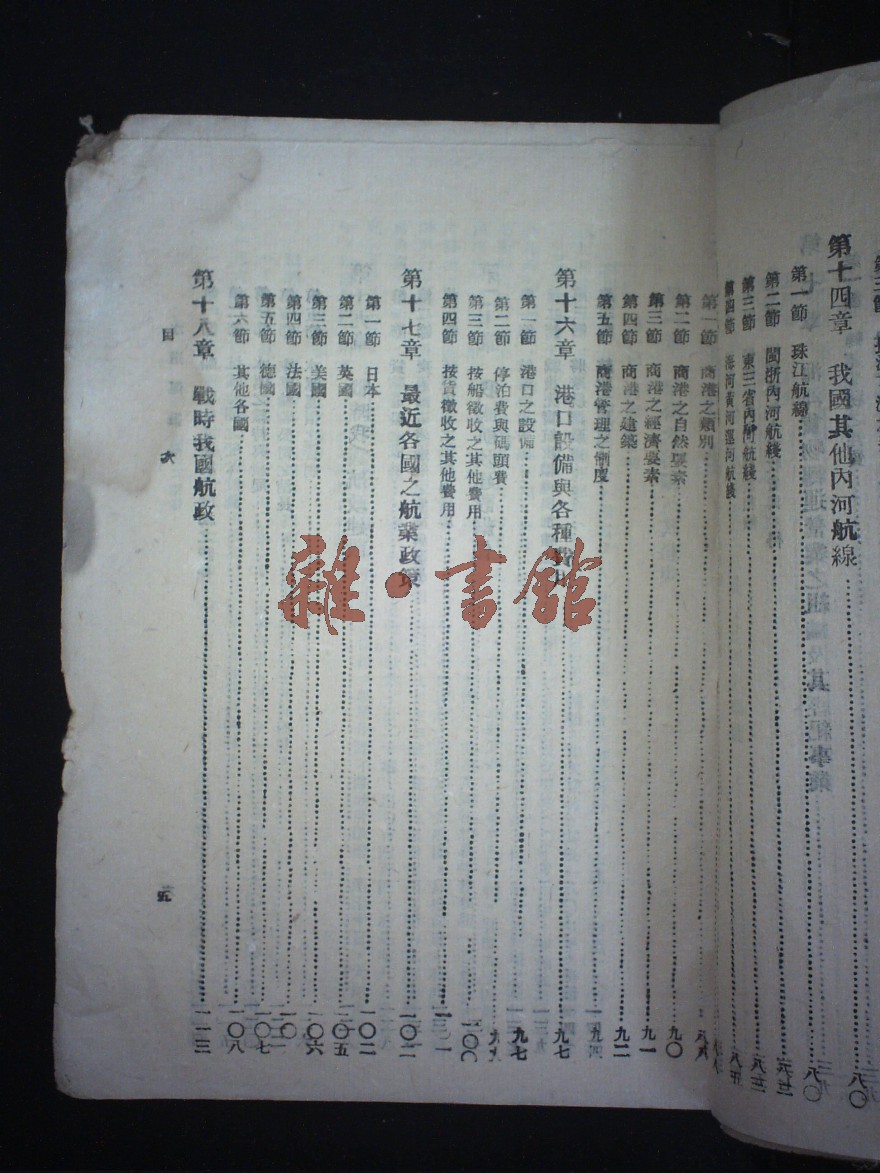 第十四章 我國其他內河航線 八〇
第一節 珠江航線 八〇
第二節 閩浙內河航綫
第三節 東三省內河航綫
第四節 海河黃河運河航綫 八五
第一節 商港之類別
第二節 商港之自然要素 九〇
第三節 商港之經濟要素 九一
第四節 商港之建築 九二
第五節 商港管理之制度 九四
第十六章 港口設備與各種費用 九七
第一節 港口之設備 九七
第二節 停泊費與碼頭費
第三節 按船徵收之其他費用 一〇〇
第四節 按貨徵收之其他費用 一〇一
第十七章 最近各國之航業政策 一〇二
第一節 日本 一〇二
第二節 英國 一〇五
第三節 美國 一〇六
第四節 法國
第五節 德國 一〇七
第六節 其他各國 一〇八
第十八章 戰時我國航政 一一三
目次
五
雜·書館